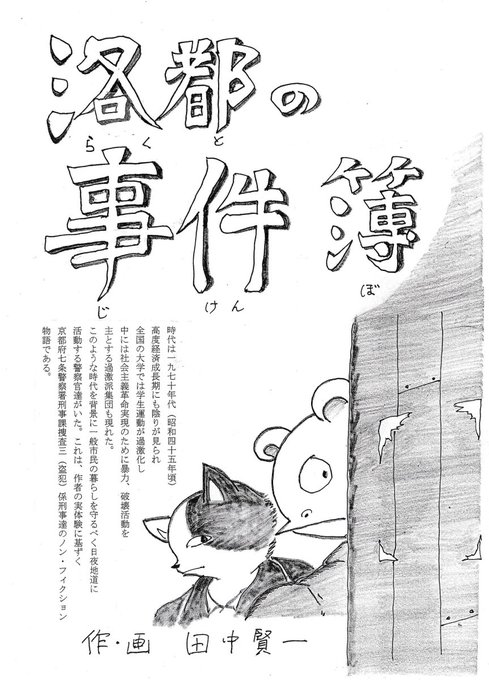 洛都の
らくと
事件簿
じけんぼ
時代は一九七十年代（昭和四十五年頃）
高度経済成長期にも陰りが見られ
全国の大学では学生運動が過激化し
中には社会主義革命実現のために暴力、破壊活動を
主とする過激派集団も現れた。
このような時代を背景に一般市民の暮らしを守るべく日夜地道に
活動する警察官達がいた。これは、作者の実体験に基ずく
京都府七条警察署刑事課捜査三（盗犯）係刑事達のノン・フィクション
物語である。
作・画 田中賢一